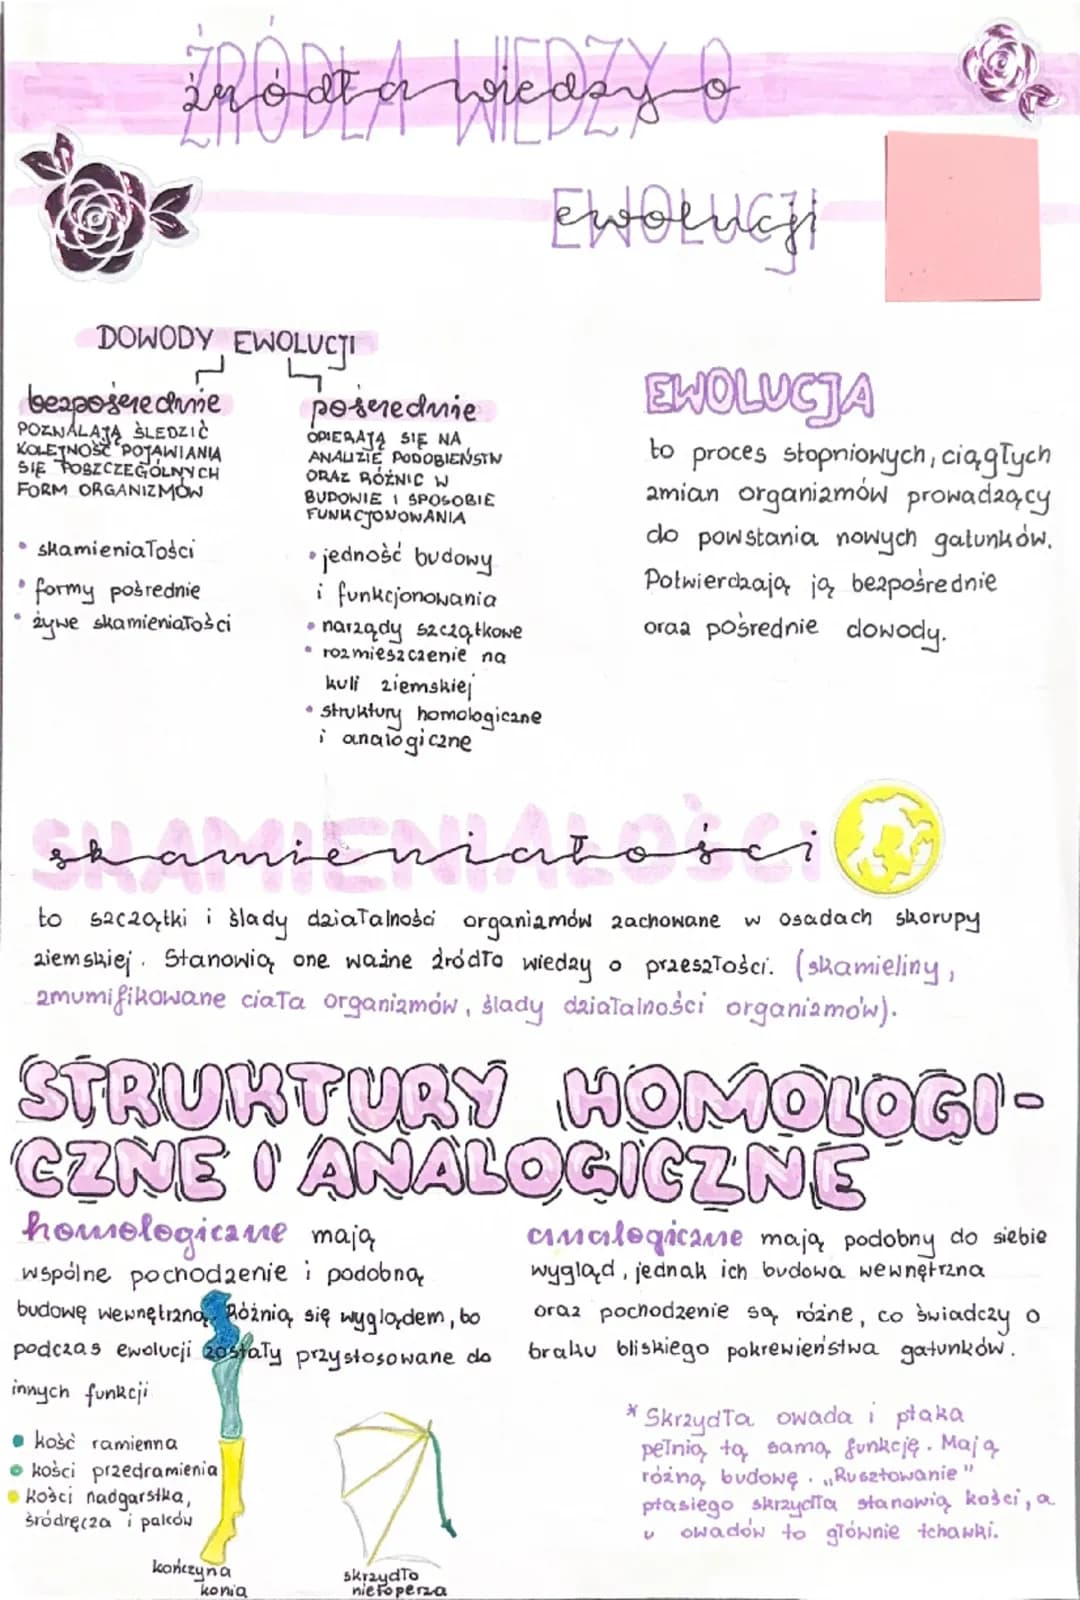 źródła wiedzy o
ewolucji
DOWODY EWOLUCJI
bezpośrednie
POZWALAJĄ ŚLEDZIĆ
KOLEJNOŚĆ POJAWIANIA
SIĘ POSZCZEGÓLNYCH
FORM ORGANIZMÓW
• skamieniałości
• formy pośrednie
• żywe skamieniałości
pośrednie
OPIERAJĄ SIĘ NA
ANALIZIE PODOBIEŃSTW
ORAZ RÓŻNIC W
BUDOWIE I SPOSOBIE
FUNKCJONOWANIA
• jedność budowy
i funkcjonowania
• narządy szczątkowe
• rozmieszczenie na
kuli ziemskiej
• struktury homologiczne
i analogiczne
EWOLUCJA
to proces stopniowych, ciągłych
zmian organizmów prowadzący
do powstania nowych gatunków.
Potwierdzają ją bezpośrednie
oraz pośrednie dowody.
skamieniałości
to szczątki i ślady działalności organizmów zachowane w osadach skorupy
ziemskiej. Stanowią one ważne źródło wiedzy o przeszłości. (skamieliny,
zmumifikowane ciała organizmów, ślady działalności organizmów).
STRUKTURY HOMOLOGI-
CZNE I ANALOGICZNE
homologiczne mają
wspólne pochodzenie i podobną
budowę wewnętrzną. Różnią się wyglądem, bo
podczas ewolucji zostały przystosowane do
innych funkcji
• kość ramienna
• kości przedramienia
• kości nadgarstka,
śródręcza i palców
kończyna
konia
skrzydło
nietoperza
analogiczne mają podobny do siebie
wygląd, jednak ich budowa wewnętrzna
oraz pochodzenie są różne, co świadczy o
braku bliskiego pokrewieństwa gatunków.
* Skrzydła owada i ptaka
pełnią tą samą funkcję. Mają
różną budowę. „Rusztowanie"
ptasiego skrzydła stanowią kości, a
u owadów to głównie tchawki.